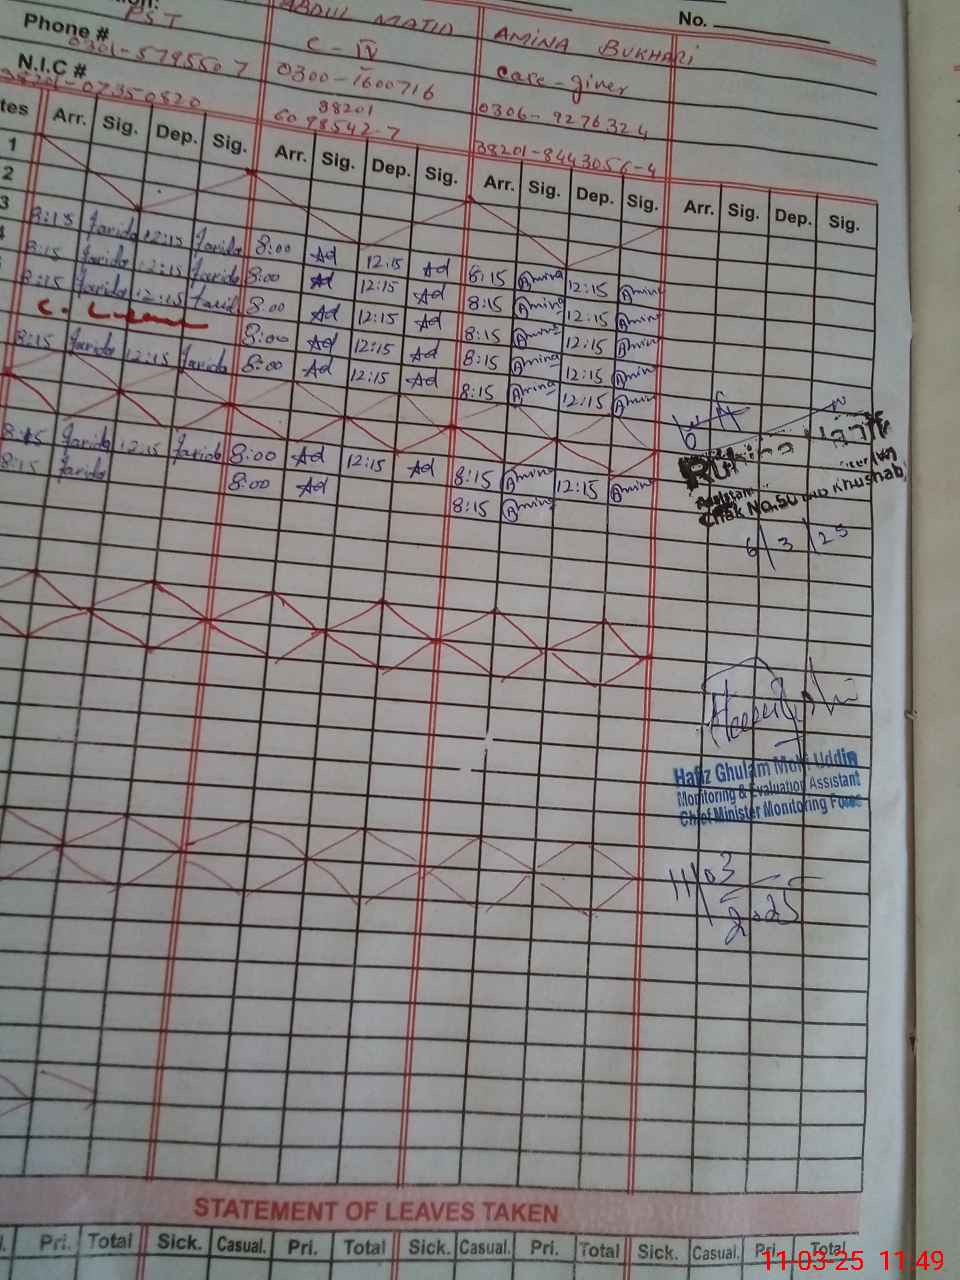 No.
ABDUL MATID
AMINA BUKHARI
PST
C-IV
Care-giver
Phone #
0301-5795507
0300-1600716
0306-9276324
N.I.C #
38201-07350820
38201
6098542-7
38201-8443056-4
tes Arr. Sig. Dep. Sig. Arr. Sig. Dep. Sig. Arr. Sig. Dep. Sig. Arr. Sig. Dep. Sig.
1
2
3
8:15 Farida 12:15 Farida 8:00 Ad 12:15 Ad 8:15 Amina 12:15 Amina
8:15 Farida 12:15 Farida 8:00 Ad 12:15 Ad 8:15 Amina 12:15 Amina
8:15 Farida 12:15 Farid 8:00 Ad 12:15 Ad 8:15 Amina 12:15 Amina
8:00 Ad 12:15 Ad 8:15 Amina 12:15 Amina
8:15 Farida 12:15 Farida 8:00 Ad 12:15 Ad 8:15 Amina 12:15 Amina
8:15 Farida 12:15 Farida 8:00 Ad 12:15 Ad 8:15 Amina 12:15 Amina
8:15 Farida 8:00 Ad 8:15 Amina
Chak No.50 Khushab
6/3/25
Hafiz Ghulam Mohi Uddin
Monitoring & Evaluation Assistant
Chief Minister Monitoring Force
11/03
2025
STATEMENT OF LEAVES TAKEN
Pri. Total Sick. Casual. Pri. Total Sick. Casual. Pri. Total Sick. Casual. Pri. Total
11-03-25 11:49